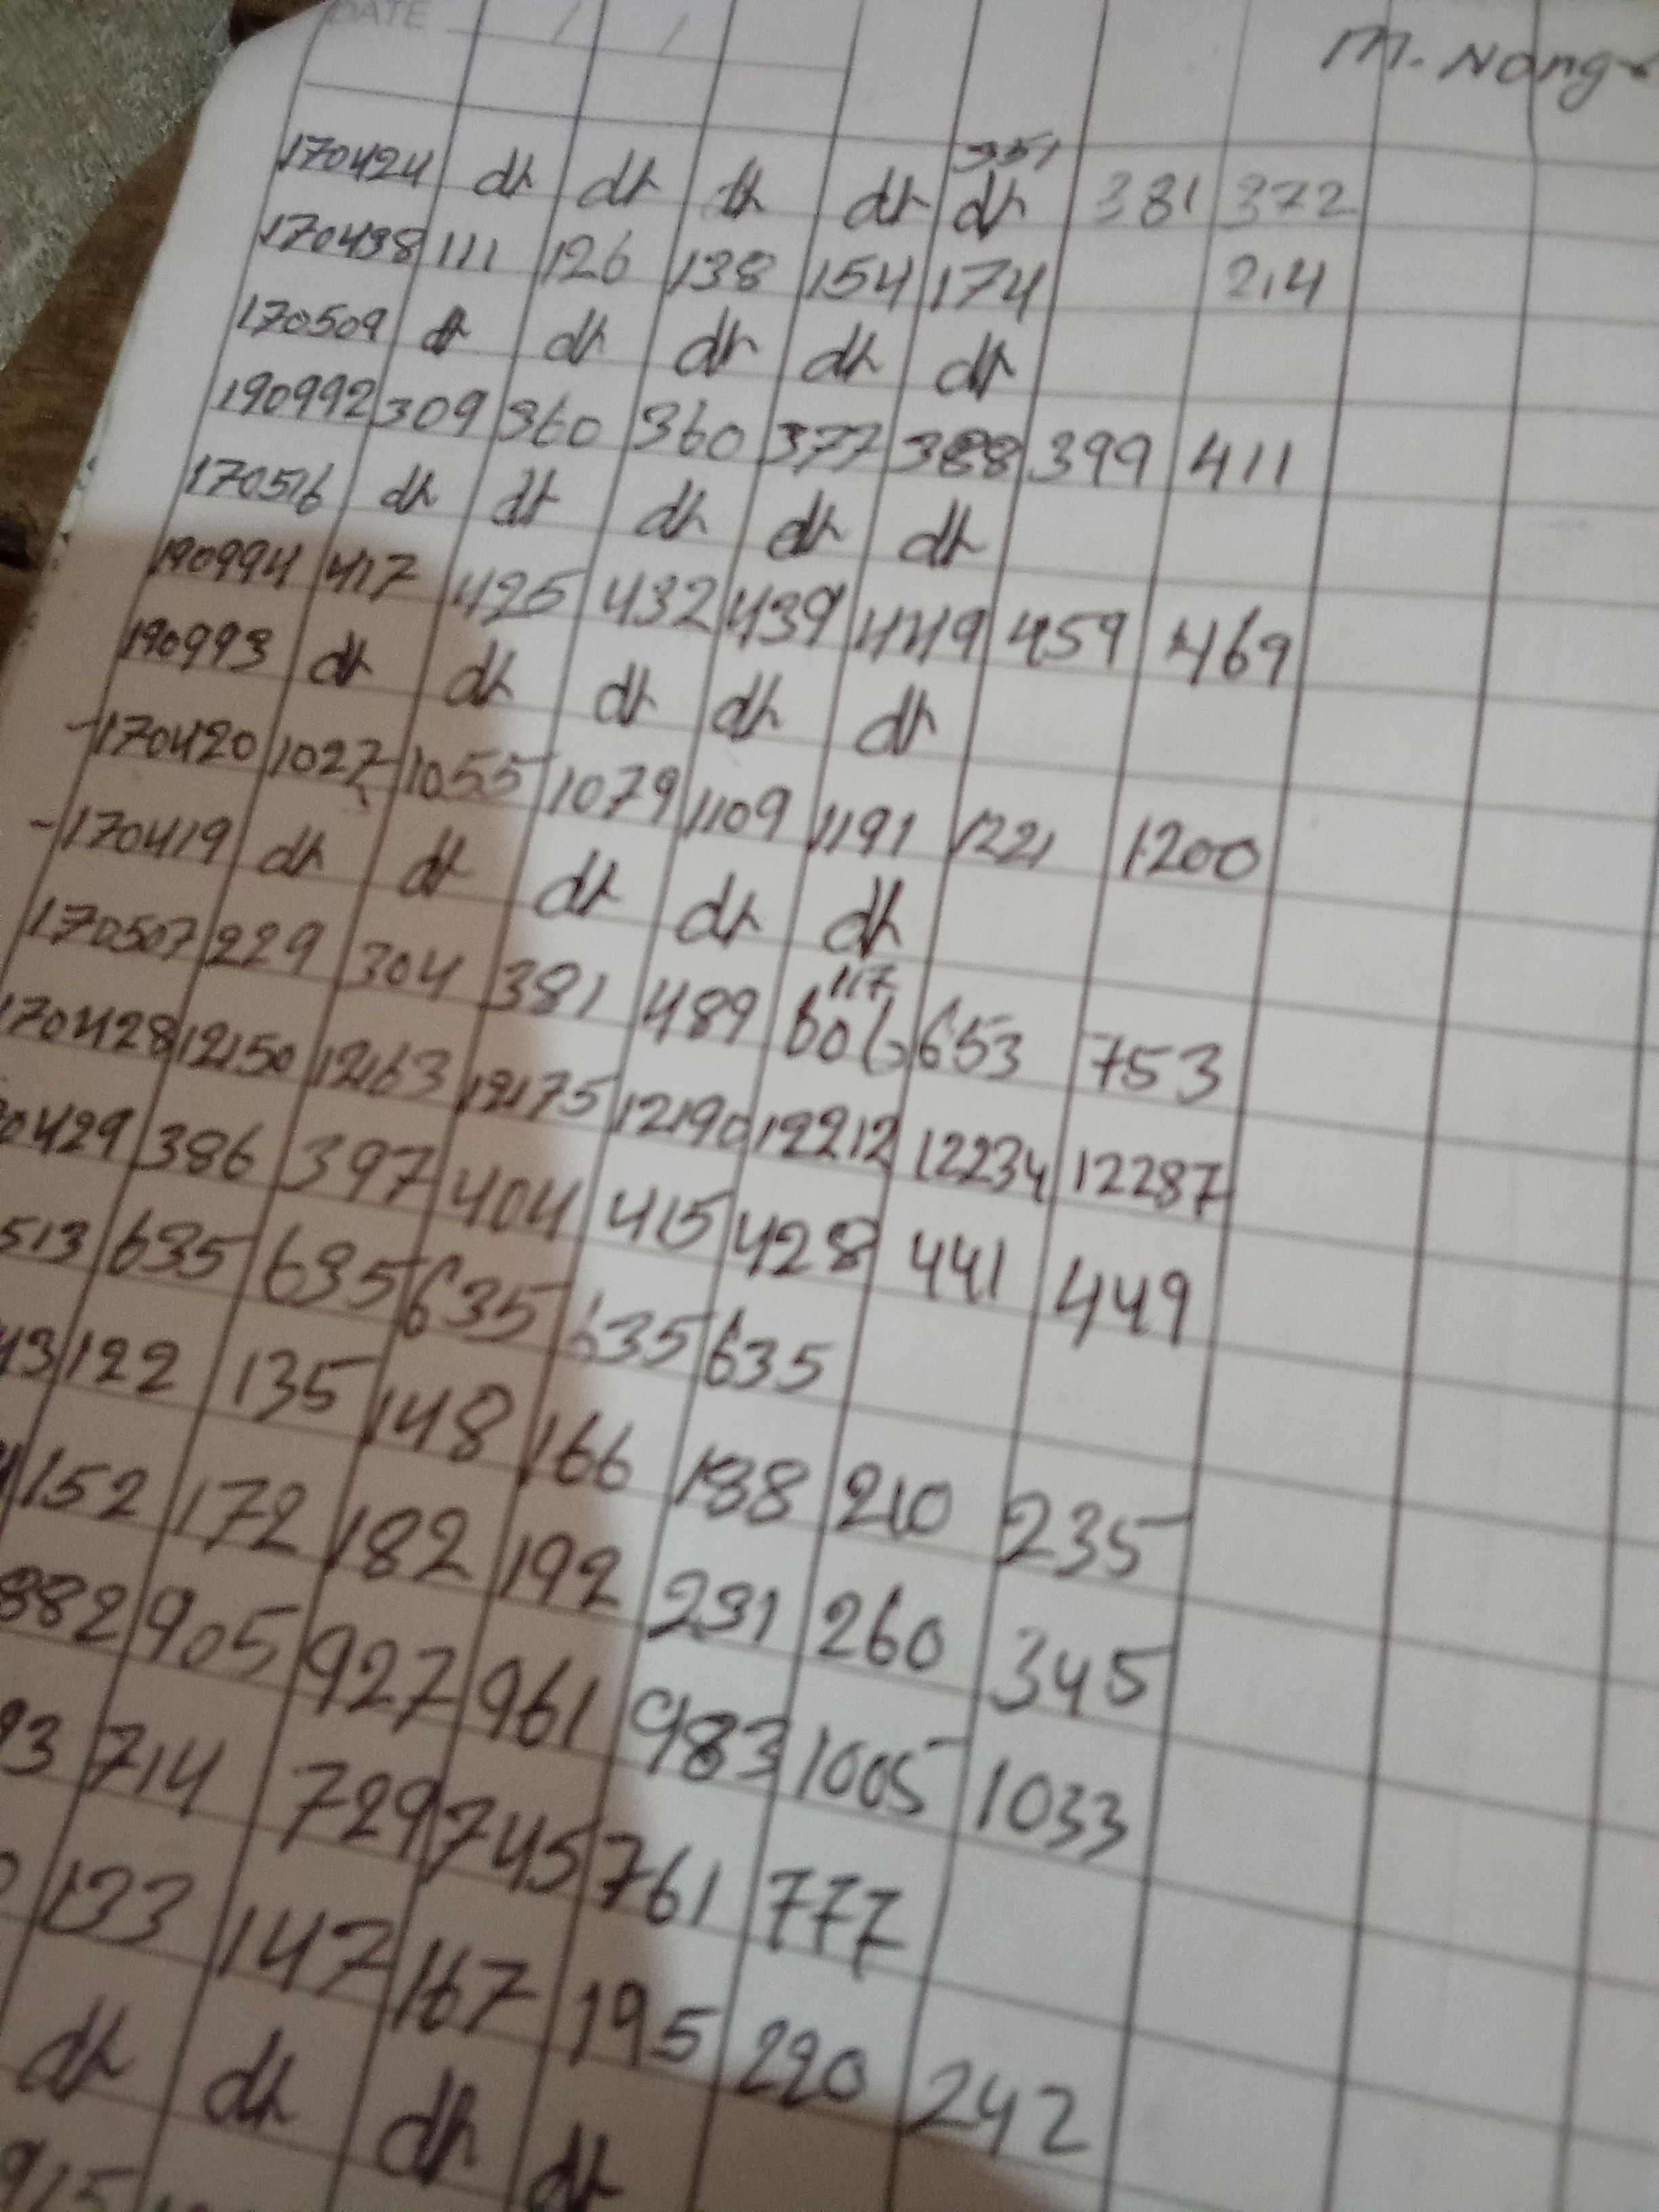 DATE / /
M. Nang
351
170424 dr dr dr dr dr 381 372
170438 111 126 138 154 174 214
170509 dr dr dr dr dr
190992 309 360 360 377 388 399 411
170516 dr dr dr dr dr
190994 417 425 432 439 449 459 469
190993 dr dr dr dr dr
-170420 1027 1055 1079 1109 1191 1221 1200
-170419 dr dr dr dr dr
117
170507 229 304 381 489 606 653 753
170428 12150 12163 12175 12190 12212 12234 12287
0429 386 397 404 415 428 441 449
513 635 635 635 635 635
43 122 135 148 166 188 210 235
152 172 182 192 231 260 345
882 905 927 961 983 1005 1033
93 714 729 745 761 777
133 147 167 195 220 242
dr dr dr dr
915